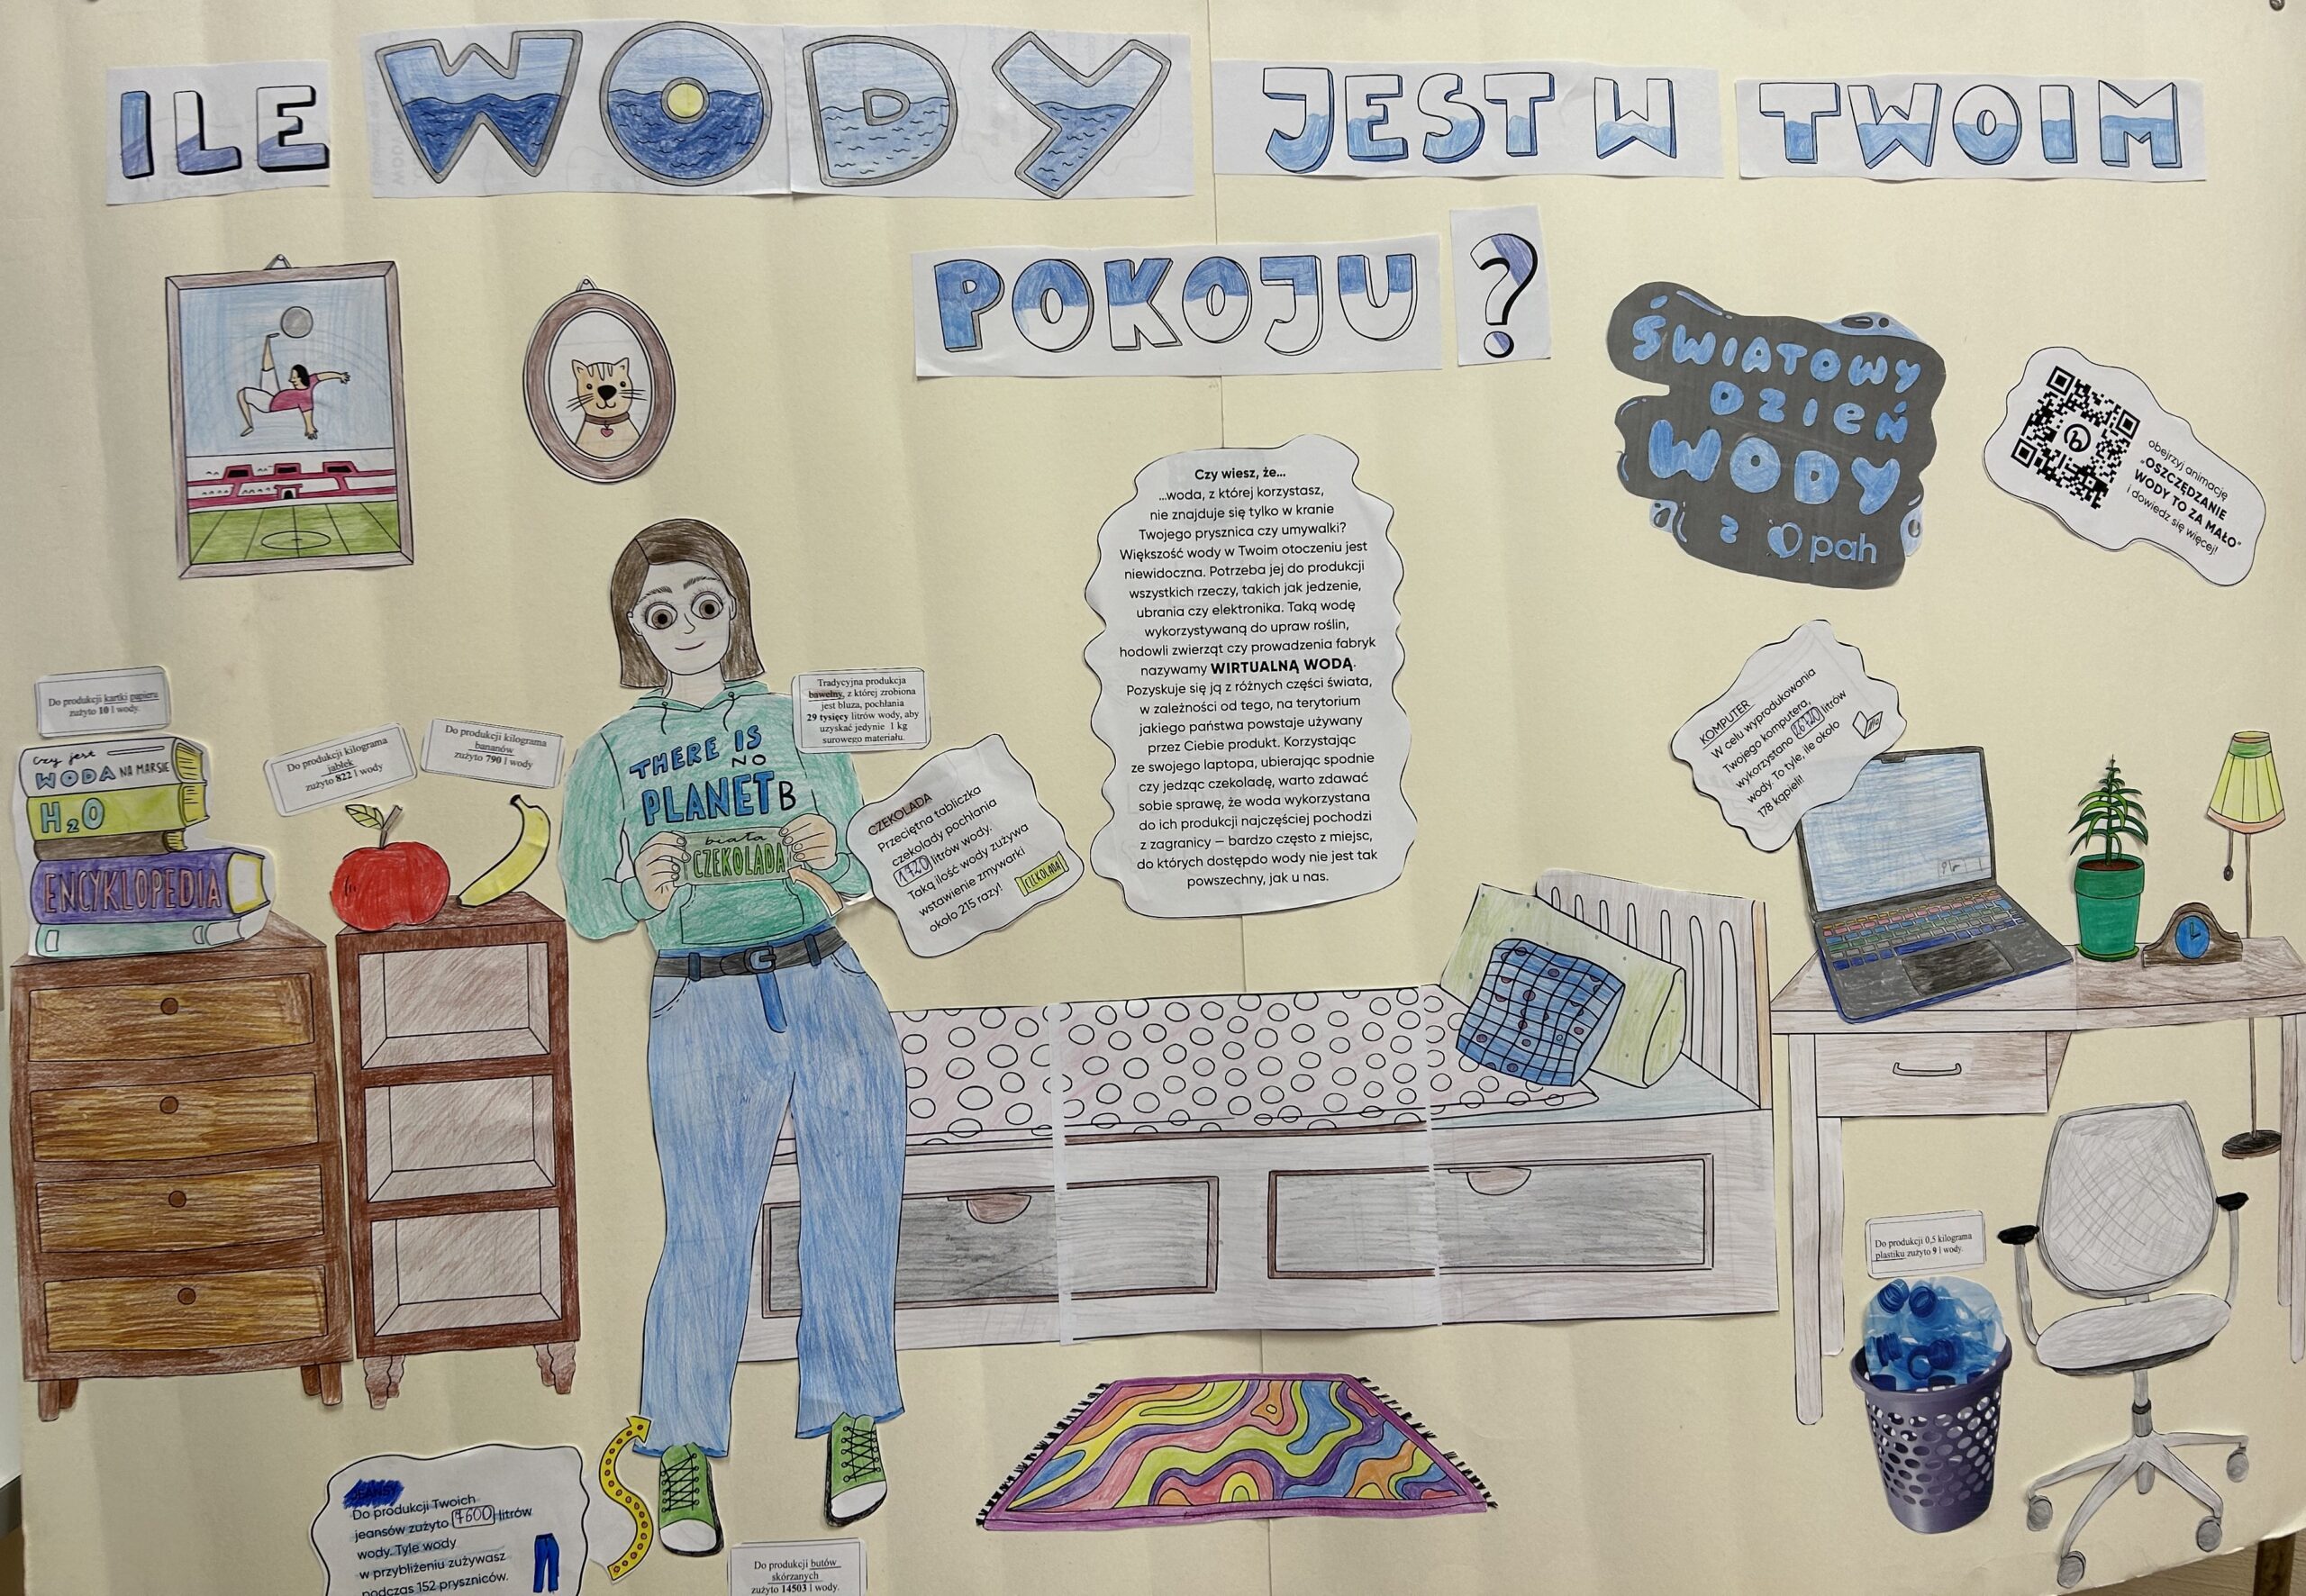 ILE WODY JEST W TWOIM
POKOJU ?
ŚWIATOWY
DZIEŃ
WODY
z pah
obejrzyj animację
"OSZCZĘDZANIE
WODY TO ZA MAŁO"
i dowiedz się więcej!
Czy wiesz, że...
...woda, z której korzystasz,
nie znajduje się tylko w kranie
Twojego prysznica czy umywalki?
Większość wody w Twoim otoczeniu jest
niewidoczna. Potrzeba jej do produkcji
wszystkich rzeczy, takich jak jedzenie,
ubrania czy elektronika. Taką wodę
wykorzystywaną do upraw roślin,
hodowli zwierząt czy prowadzenia fabryk
nazywamy WIRTUALNĄ WODĄ.
Pozyskuje się ją z różnych części świata,
w zależności od tego, na terytorium
jakiego państwa powstaje używany
przez Ciebie produkt. Korzystając
ze swojego laptopa, ubierając spodnie
czy jedząc czekoladę, warto zdawać
sobie sprawę, że woda wykorzystana
do ich produkcji najczęściej pochodzi
z zagranicy – bardzo często z miejsc,
do których dostępdo wody nie jest tak
powszechny, jak u nas.
Do produkcji kartki papieru
zużyto 10 l wody.
Czy jest
WODA NA MARSIE
H2O
ENCYKLOPEDIA
Do produkcji kilograma
jabłek
zużyto 822 l wody
Do produkcji kilograma
bananów
zużyto 790 l wody
THERE IS
NO
PLANET B
biała
CZEKOLADA
Tradycyjna produkcja
bawełny, z której zrobiona
jest bluza, pochłania
29 tysięcy litrów wody, aby
uzyskać jedynie 1 kg
surowego materiału.
CZEKOLADA
Przeciętna tabliczka
czekolady pochłania
1720 litrów wody.
Taką ilość wody zużywa
wstawienie zmywarki
około 215 razy!
CZEKOLADA
KOMPUTER
W celu wyprodukowania
Twojego komputera,
wykorzystano litrów
wody. To tyle, ile około
178 kąpieli!
Do produkcji 0,5 kilograma
plastiku zużyto 9 l wody.
JEANSY
Do produkcji Twoich
jeansów zużyto 7600 litrów
wody. Tyle wody
w przybliżeniu zużywasz
podczas 152 pryszniców.
Do produkcji butów
skórzanych
zużyto 14503 l wody.